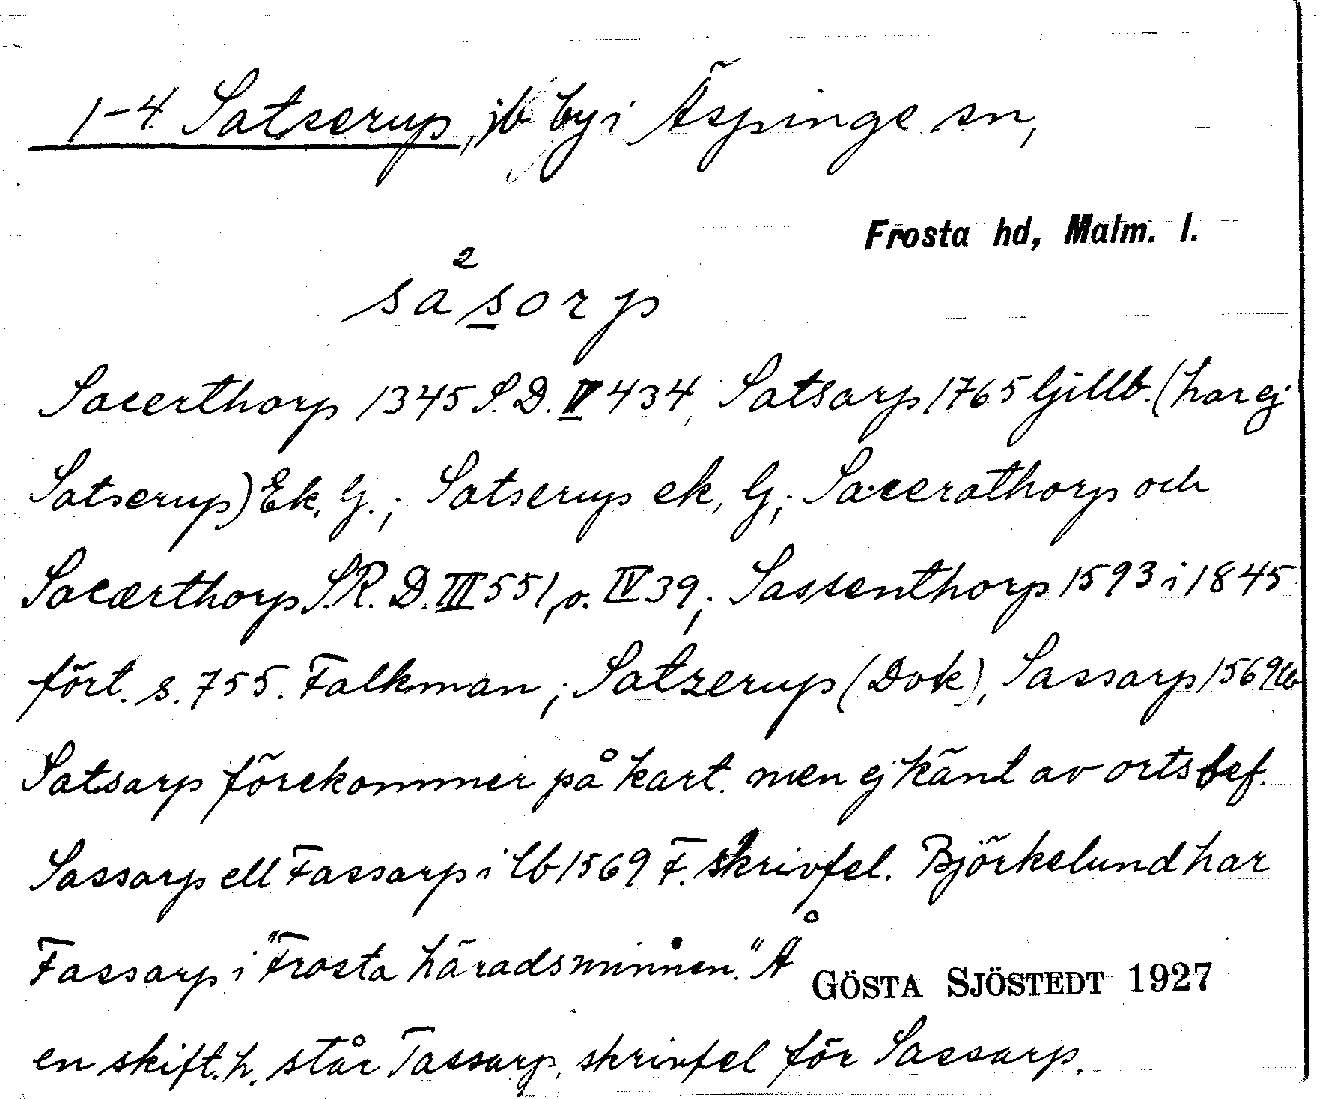 1-4 Satserup, jb by i Äspinge sn,
Frosta hd, Malm. l.
såsorp
Sacerthorp 1345 S.D. IV 434, Satsarp 1765 Gillb. (har ej
Satserup) Ek. G.; Satserup ek. G; Sacerathorp och
Sacærthorp S.R.D. III 551, o. IV 39; Sassenthorp 1593 i 1845
fört. s. 755. Falkman; Satzerup (Dok), Sassarp 1569 lb
Satsarp förekommer på kart. men ej känt av ortsbef.
Sassarp ell Fassarp i lb 1569 F. skrivfel. Björkelund har
Fassarp i "Frosta häradsminnen." Å
GÖSTA SJÖSTEDT 1927
en skift.h. står Tassarp, skrivfel för Sassarp.